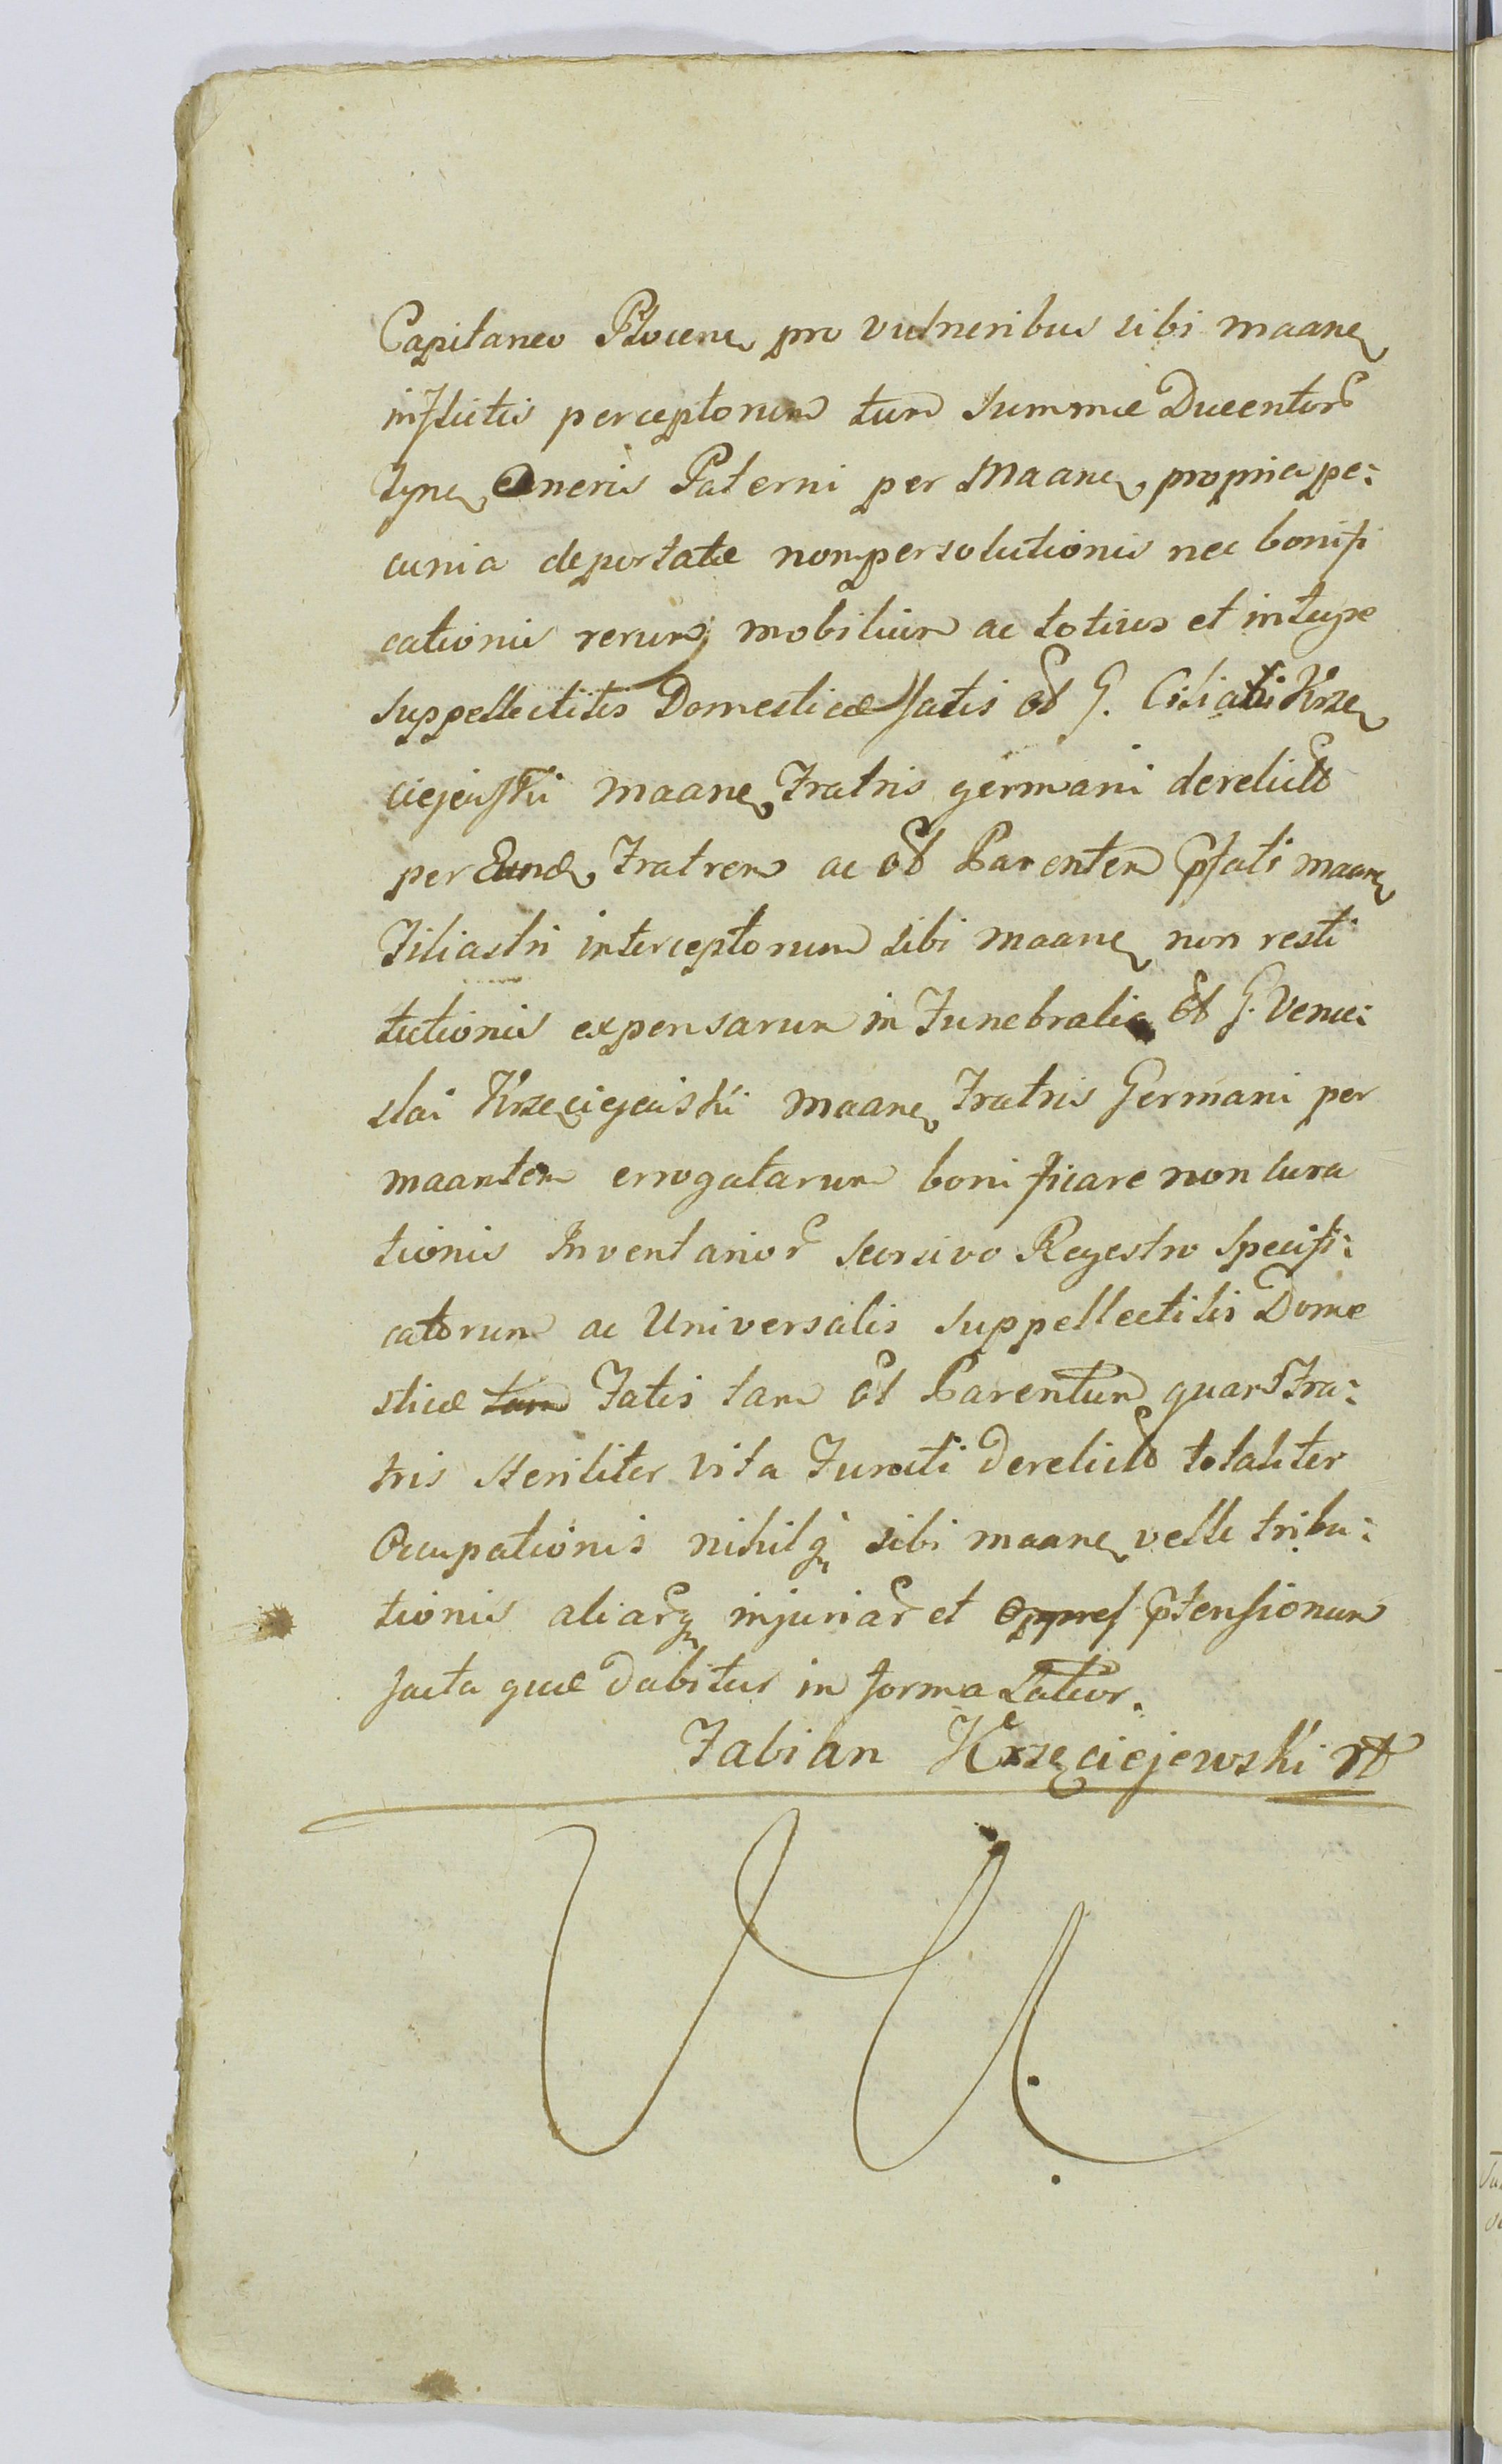 Capitaneo Plocene pro vulneribus sibi maane
inflictis perceptorum tum summæ Ducentor
tyne Oneris Paterni per Maane propria pe:
cunia deportatæ nonpersolutionis nec bonifi
cationis rerum mobilium ac totius et integræ
suppellectitis Domesticæ fatis od G. Krze
ciejewski maane Fratris germani derelictæ
per Eund Fratrem ac od Parentem pfati maane
Filiastri interceptorum sibi maane non resti
tutionis expensarum in Funebralia od G. Vence:
slai Krzęciejewski maane Fratris Germani per
maantem errogatarum bonificare non cura
tionis Inventarior seorsivo Regestro specifi:
catorum ac Universalis suppellectilis Dome
sticæ tam Fatis tam od Parentum quam Fra:
tris steriliter vita Functi derelictæ totaliter
Occupationis nihilq sibi maane velle tribu:
tionis aliarq injuriar et oppres ptensionum
facta quæ dabitur in forma Latior.
Fabian Krzęciejewski